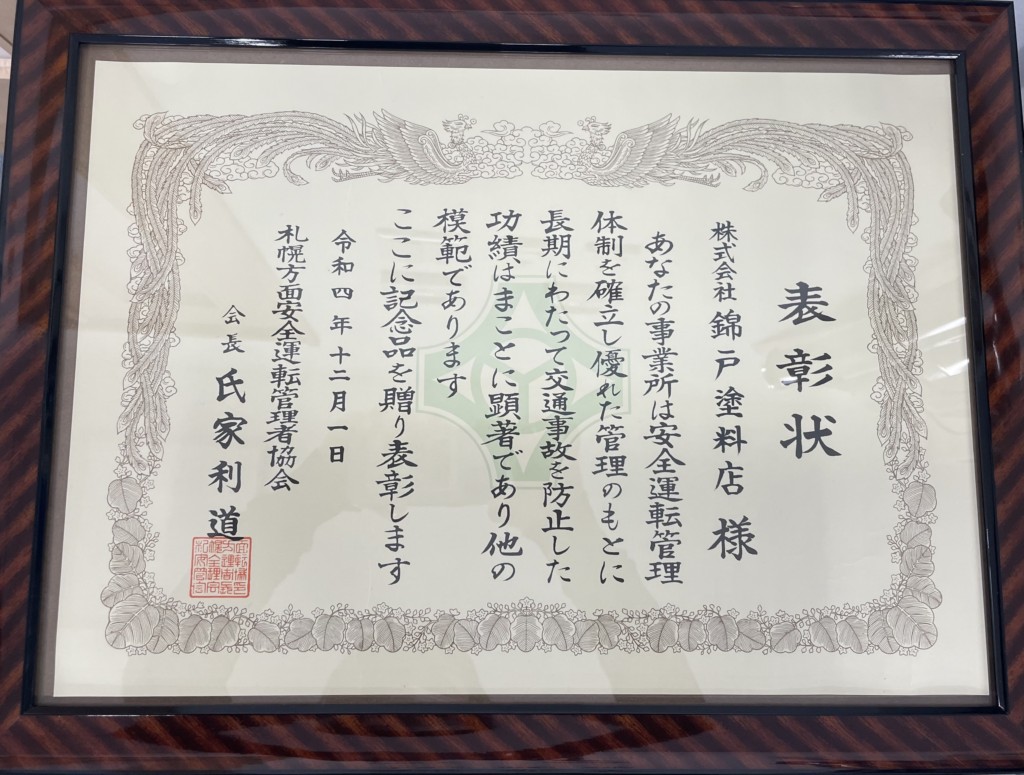 表彰状
株式会社 錦戸塗料店 様
あなたの事業所は安全運転管理
体制を確立し優れた管理のもとに
長期にわたって交通事故を防止した
功績はまことに顕著であり他の
模範であります
ここに記念品を贈り表彰します
令和四年十二月一日
札幌方面安全運転管理者協会
会長 氏家利道